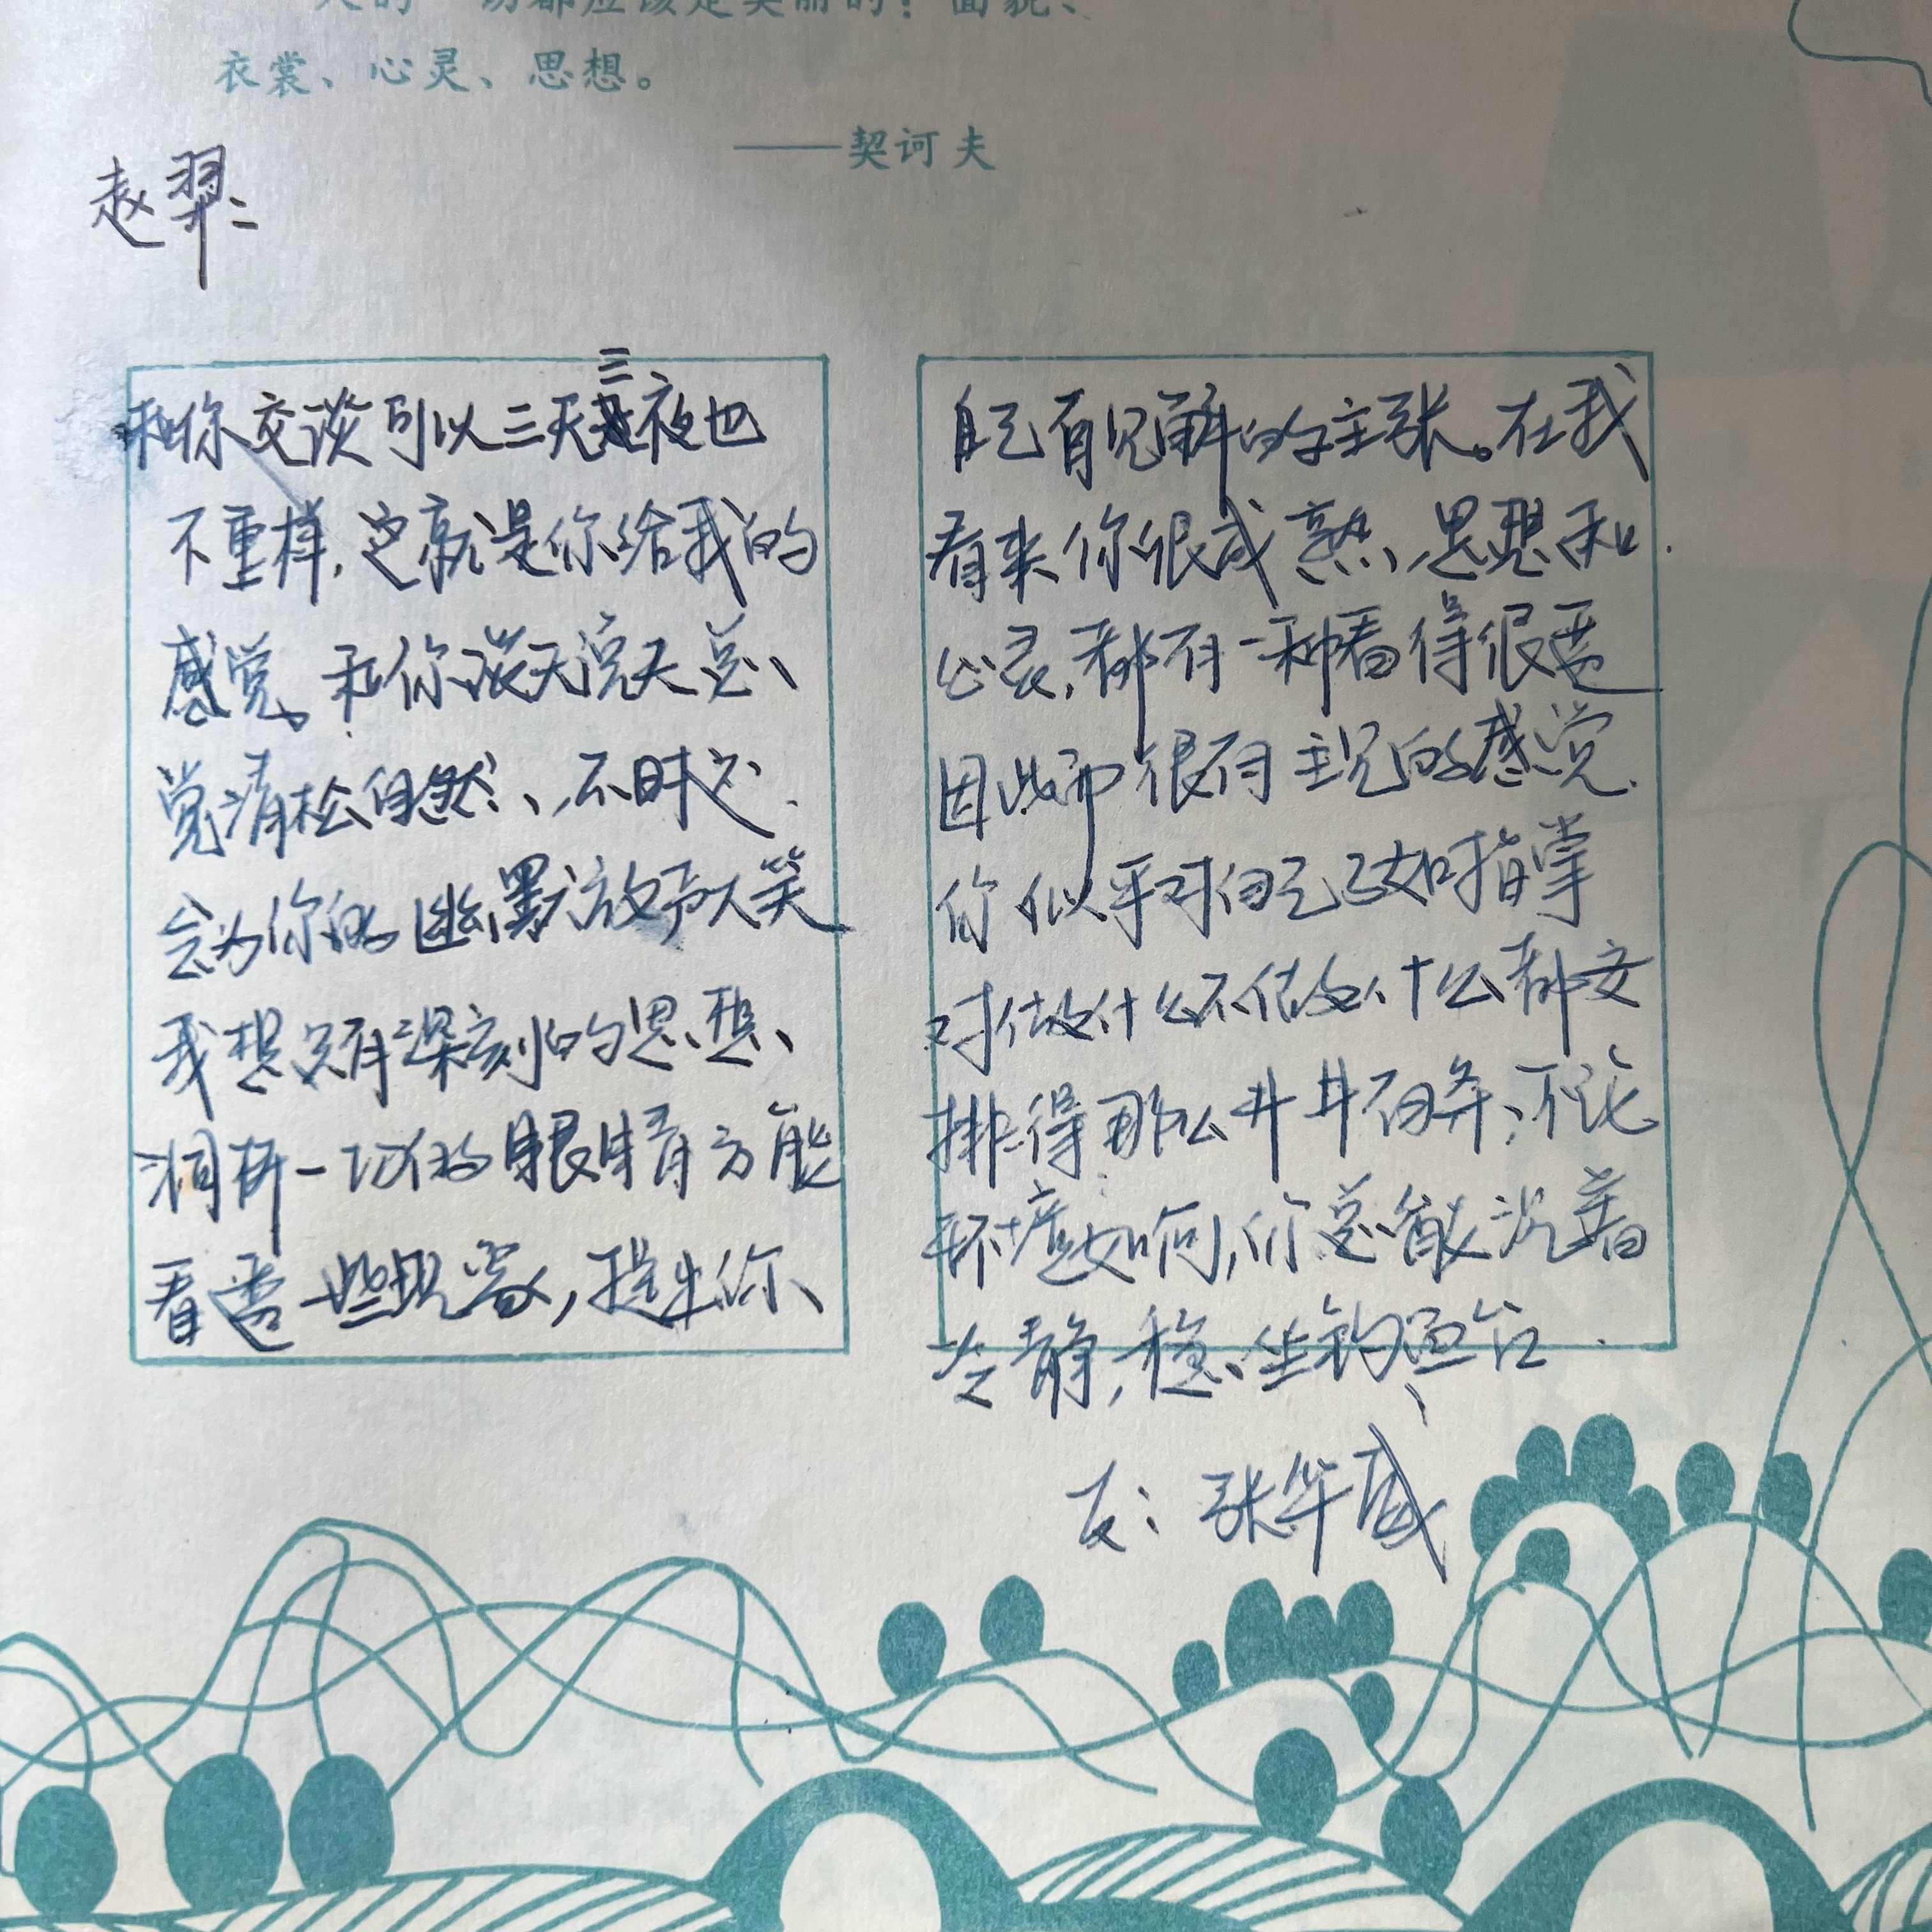 人的一切都应该是美丽的：面貌、
衣裳、心灵、思想。
——契诃夫
赵羿：
和你交谈可以三天三夜也
不重样，这就是你给我的
感觉。和你谈天说天总、
觉清松自然、，不时、
会为你的幽默放声大笑
我想只有深刻的思想、
洞析一切的眼睛方能
看透一些现象，提出你、
自己有见解的主张。在我
看来你很成熟，思想和
心灵，都有一种看得很透
因此而很有主见的感觉.
你似乎对自己了如指掌
对做什么不做什么都安
排得那么井井有条；不论
环境如何，你总能沉着
冷静，稳坐钓鱼台.
友：张华威